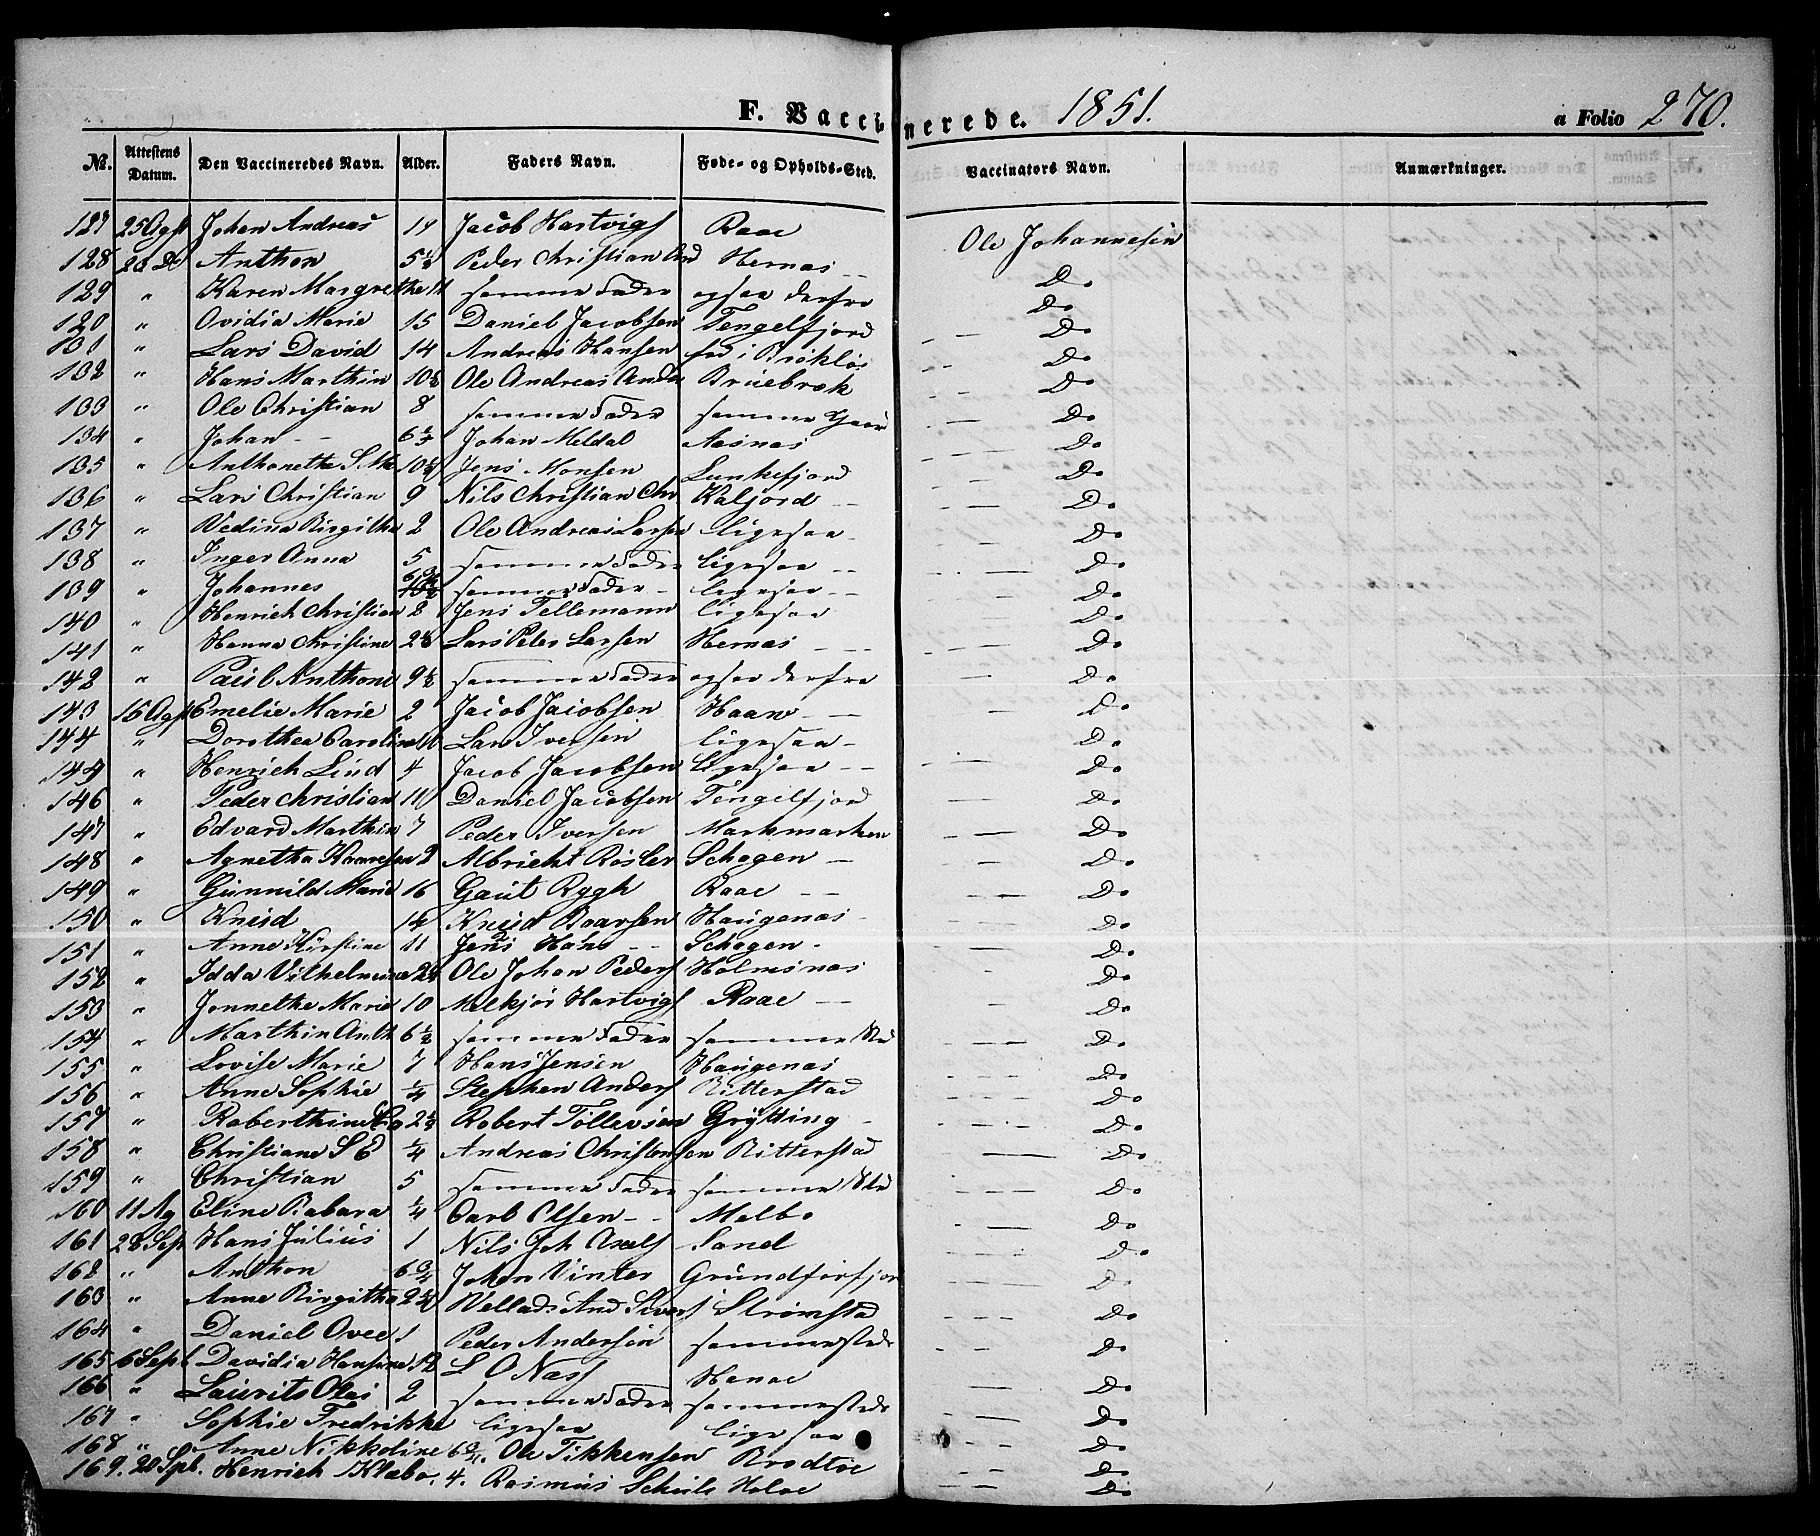 F. Vaccinerede. 1851. a Folio 270.
No. Attestens Datum. Den Vaccineredes Navn. Alder. Faders Navn. Føde- og Opholds-Sted. Vaccinators Navn. Anmærkninger.
127 25 Agst Johan Andreas 14 Jacob Hartvigs Raae Ole Johannesen
128 Do Anthon 5½ Peder Christian And Hernas Do
129 " Karen Margrethe 11 samme Fader ogsaa derfra Do
120 " Ovidia Marie 15 Daniel Jacobsen Tengelfjord Do
131 " Lars David 14 Andreas Hansen fød i Do
132 " Hans Marthin 10½ Ole Andreas Ande Do
133 " Ole Christian 8 samme Fader samme Gaard Do
134 " Johan 6½ Johan Meldal Aasnas Do
135 " Anthonetha 10½ Jens Monsen Lunkefjord Do
136 " Lars Christian 9 Nils Christian Chr Kaljord Do
137 " Vedina Birgitha 2 Ole Andreas Larsen ligesaa Do
138 " Inger Anna 5 samme Fader ligesaa Do
139 " Johannes samme Fader ligesaa Do
140 " Henrich Christian 2 Jens Tellemann ligesaa Do
141 " Hanna Christine 2½ Lars Peter Larsen Hernas Do
142 " Paul Anthon 9½ samme Fader ogsaa derfra Do
143 16 Agst Emelie Marie 2 Jacob Jacobsen Haaw Do
144 " Dorothea Caroline Lars Iversen ligesaa Do
144 " Henrich Lind 4 Jacob Jacobsen ligesaa Do
146 " Peder Christian 11 Daniel Jacobsen Tengelfjord Do
147 " Edvard Marthin 7 Peder Iversen Markmarken Do
148 " Agnetha 2 Albricht Røsler Schagen Do
149 " Gunnild Marie 16 Gaut Rygh Raae Do
150 " Knud 14 Knud Roarsen Haugenas Do
151 " Anne Kirstine 11 Jens Hans Schogen Do
152 " Idda Vilhelmine Ole Johan Peders Holmsnas Do
153 " Jennethe Marie 10 Melkjør Hartvigs Raae Do
154 " Marthin Anth 6½ samme Fader samme Sted Do
155 " Lovise Marie 7 Hans Jensen Haugenas Do
156 " Anne Sophie ¼ Stephen Anders Ritterstad Do
157 " Roberthine 2½ Robert Tollevsen Grÿtting Do
158 " Christiane S E ¼ Andreas Christensen Ritterstad Do
159 " Christian 5 samme Fader samme Sted Do
160 11 Ag Eline Babara ¼ Carl Olsen Melbo Do
161 28 Sep Hans Julius 1 Nils Joh Axels Sand Do
162 " Anthon 6¾ Johan Vinter Grundførfjor Do
163 " Anne Birgitha 2½ Vellads And Sivers Strømstad Do
164 " Daniel Ovee 1 Peder Andersen sammesteds Do
165 6 Sept Davidia Hansine 12 L O Næss Hanae Do
166 " Laurits Olai 2 samme Fader sammesteds Do
167 " Sophie Fredrikke ligesaa ligesaa Do
168 " Anne Nikkoline 6¾ Ole Tikkensen Brodtøe Do
169. 20 Spb. Henrich Klæbo. 4. Rasmus Schels Holoe Do